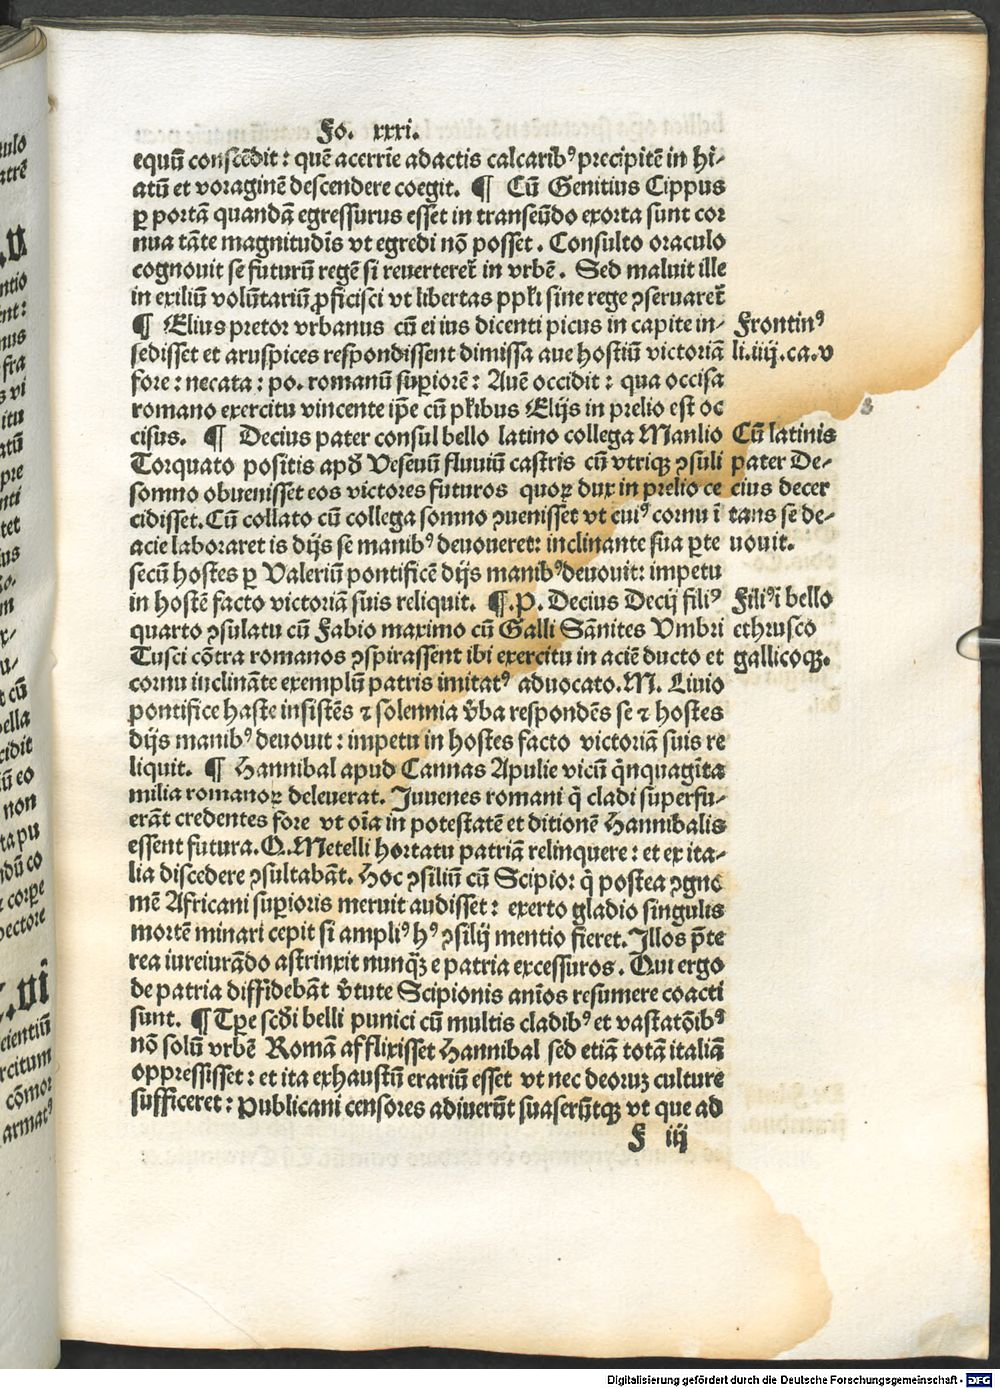 Fo. xxxi.
equū conscēdit: quē acerrīe adactis calcaribꝰ precipitē in hi⸗
atū et voraginē descendere coegit. ¶ Cū Genitius Cippus
ꝑ portā quandā egressurus esset in transeūdo exorta sunt cor
nua tāte magnitudīs vt egredi nō posset. Consulto oraculo
cognouit se futurū regē si reuerteret̄ in vrbē. Sed maluit ille
in exiliū volūtariū ꝓficisci vt libertas ppl̄i sine rege ꝯseruaret̄
¶ Elius pretor vrbanus cū ei ius dicenti picus in capite in⸗
sedisset et aruspices respondissent dimissa aue hostiū victoriā
fore: necata: po. romanū suꝑiorē: Auē occidit: qua occisa
romano exercitu vincente ip̄e cū pl̄ibus Elijs in prelio est oc
cisus. ¶ Decius pater consul bello latino collega Manlio
Torquato positis apđ Veseuū fluuiū castris cū vtriqꝫ ꝯsuli
somno obuenisset eos victores futuros quoꝝ dux in prelio ce
cidisset. Cū collato cū collega somno ꝯuenisset vt cuiꝰ cornu ī
acie laboraret is dijs se manibꝰ deuoueret: inclinante sua ꝑte
secū hostes ꝑ Valeriū pontificē dijs manibꝰ deuouit: impetu
in hostē facto victoriā suis reliquit. ¶ .P. Decius Decij filiꝰ
quarto ꝯsulatu cū Fabio maximo cū Galli Sānites Vmbri
Tusci cōtra romanos ꝯspirassent ibi exercitu in aciē ducto et
cornu inclināte exemplū patris imitatꝰ aduocato. M. Liuio
pontifice haste insistēs ⁊ solennia v̄ba respondēs se ⁊ hostes
dijs manibꝰ deuouit: impetu in hostes facto victoriā suis re
liquit. ¶ Hannibal apud Cannas Apulie vicū q̄nquagīta
milia romanoꝝ deleuerat. Juuenes romani q̄ cladi superfu⸗
erāt credentes fore vt oīa in potestatē et ditionē Hannibalis
essent futura. Q. Metelli hortatu patriā relinquere: et ex ita⸗
lia discedere ꝯsultabāt. Hoc ꝯsiliū cū Scipio: q̄ postea ꝯgno
mē Africani suꝑioris meruit audisset: exerto gladio singulis
mortē minari cepit si ampliꝰ hꝰ ꝯsilij mentio fieret. Illos p̄te
rea iureiurādo astrinxit nunqꝫ̄ e patria excessuros. Qui ergo
de patria diffidebāt v̄tute Scipionis anīos resumere coacti
sunt. ¶ Tꝑe scđi belli punici cū multis cladibꝰ et vastatōibꝰ
nō solū vrbē Romā afflixisset Hannibal sed etiā totā italiā
oppressisset: et ita exhaustū erariū esset vt nec deoruꝫ culture
sufficeret: Publicani censores adiuerūt suaserūtqꝫ vt que ad
F iij
Frontinꝰ
li. iiij. ca. v
Cū latinis
pater De⸗
cius decer
tans se de⸗
uouit.
Filiꝰ ī bello
ethrusco
gallicoqꝫ.
Digitalisierung gefördert durch die Deutsche Forschungsgemeinschaft - DFG